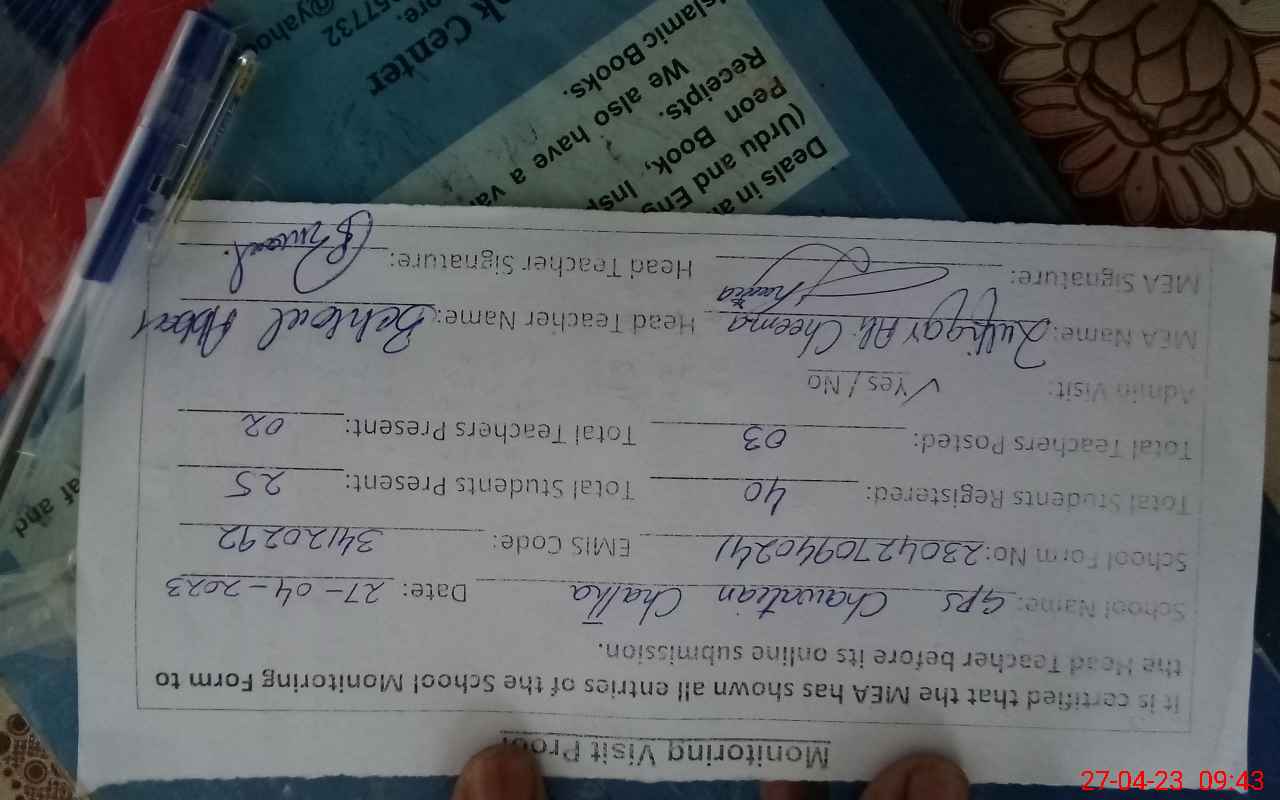 Monitoring Visit Proof
It is certified that the MEA has shown all entries of the School Monitoring Form to
the Head Teacher before its online submission.
School Name: GPS Chawalian Chatha Date: 27-04-2023
School Form No: 2304270940241 EMIS Code: 34120292
Total Students Registered: 40 Total Students Present: 25
Total Teachers Posted: 03 Total Teachers Present: 02
Admin Visit: ✓Yes / No
MEA Name: Zulfiqar Ali Cheema Head Teacher Name: Behloul Abbas
MEA Signature: Head Teacher Signature:
Deals in a
(Urdu and Eng
Peon Book, Insp
Receipts.
We also have a va
Islamic Books.
k Center
ore.
57732
@yaho
af and
27-04-23 09:43